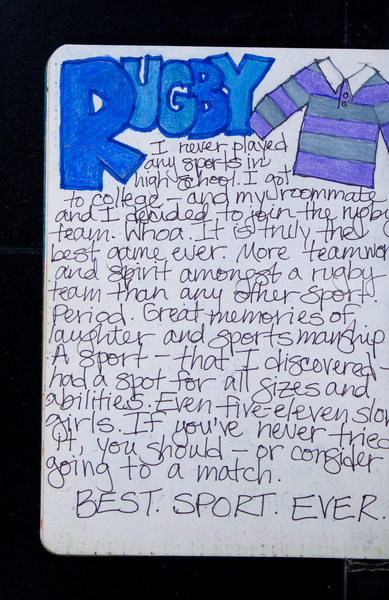 RUGBY
I never played
any sports in
high school. I got
to college - and my roommate
and I decided to join the rugby
team. Whoa. It is truly the
best game ever. More teamwor
and spirit amongst a rugby
team than any other sport.
Period. Great memories of
laughter and sportsmanship.
A sport - that I discovered -
had a spot for all sizes and
abilities. Even five-eleven slow
girls. If you've never tried
it, you should - or consider
going to a match.
BEST. SPORT. EVER.